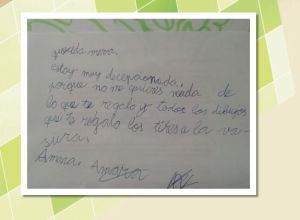 querida mama.
estoy muy decepcionada.
porque no me quieres nada de
lo que te regalo y todos los dibujos
que te regalo los tires a la va-
sura.
Amara. Amara